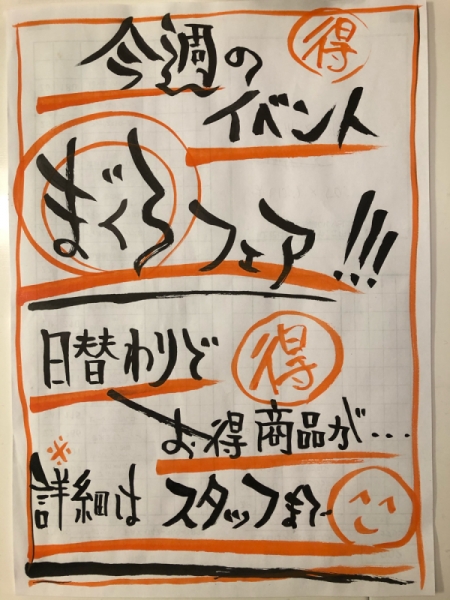 今週の
得
イベント
まぐろ
フェア!!!
日替わりで
得
お得商品が...
※
詳細は スタッフまで